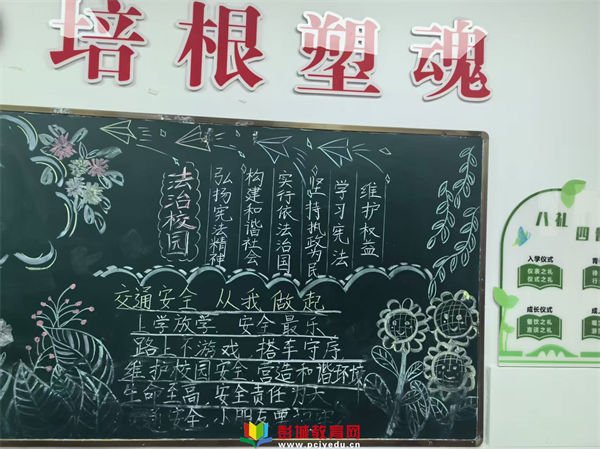 培根塑魂
法治校园
弘扬宪法精神
构建和谐社会
实行依法治国
坚持执政为民
学习宪法
维护权益
交通安全 从我做起
上学放学 安全最乐
路上不游戏 搭车守序
维护校园安全 营造和谐环境
生命至高,安全责任为天
安全,小朋友
八礼四
入学仪式
仪表之礼
仪式之礼
成长仪式
餐饮之礼
言谈之礼
彭城教育网
www.pcjyedu.cn